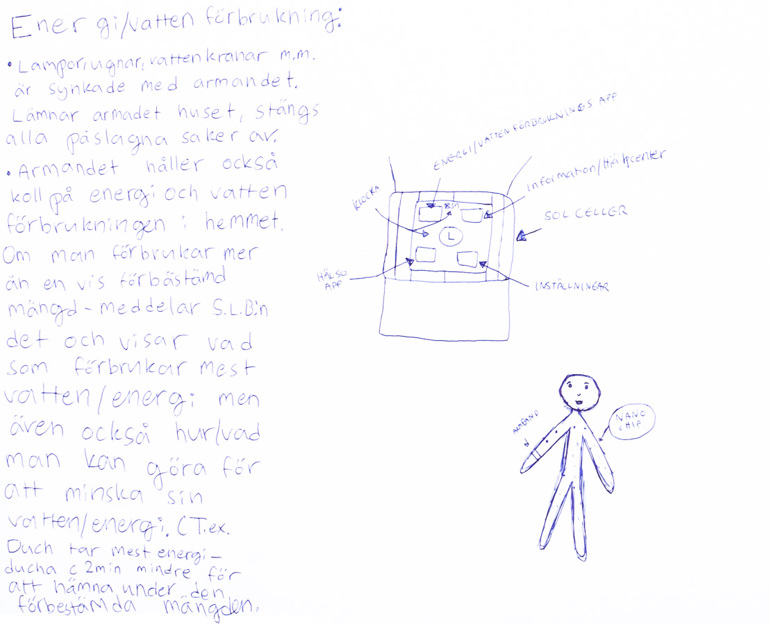 Energi/vatten förbrukning:
• Lampor, ugnar, vattenkranar m.m.
är synkade med armandet.
Lämnar armadet huset, stängs
alla påslagna saker av.
• Armandet håller också
koll på energi och vatten
förbrukningen i hemmet.
Om man förbrukar mer
än en vis förbästämd
mängd - meddelar S.L.B:n
det och visar vad
som förbrukar mest
vatten/energi men
även också hur/vad
man kan göra för
att minska sin
vatten/energi. (T.ex.
Duch tar mest energi -
ducha c 2min mindre för
att hämna under den
förbestämda mängden.
ENERGI/VATTENFÖRBRUKNINGS APP
Information/Hjälpcenter
KLOCKA
SOL CELLER
L
HÄLSO
APP
INSTÄLLNINGAR
ARMBAND
NANO
CHIP